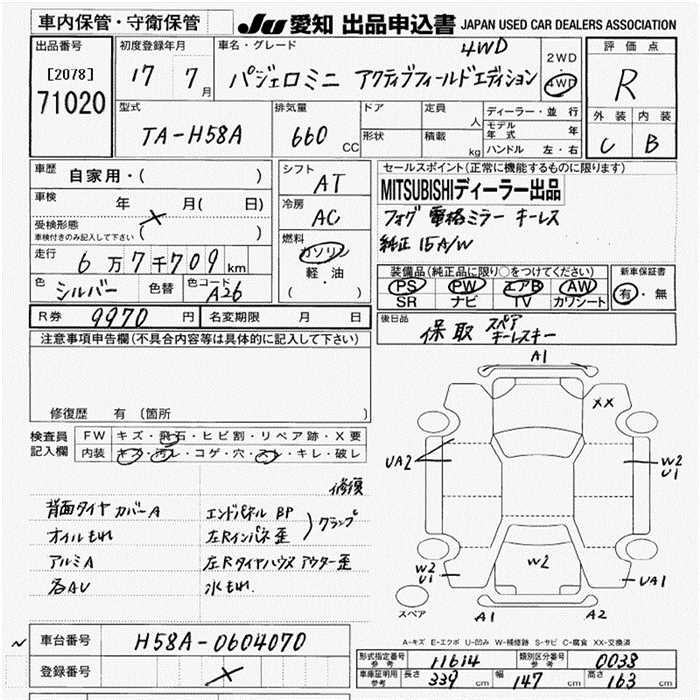 車内保管・守衛保管
JU 愛知 出品申込書 JAPAN USED CAR DEALERS ASSOCIATION
出品番号
[2078]
71020
初度登録年月
17 7月
車名・グレード
4WD
パジェロミニ アクティブフィールドエディション
2WD
4WD
評価点
R
外装 内装
C B
型式
TA-H58A
排気量
660 CC
ドア
形状
定員 人
積載 kg
ディーラー・並行
モデル年式 年
ハンドル 左・右
車歴
自家用・( )
車検 年 月( 日)
受検形態
車検付きのみ記入して下さい ( )
走行 6万7千709km
色 シルバー 色替 色コード A26
シフト
AT
冷房
AC
燃料
ガソリン
軽・油
( )
セールスポイント(正常に機能するものに限ります)
MITSUBISHIディーラー出品
フォグ 電格ミラー キーレス
純正15A/W
装備品(純正品に限り○をつけてください)
PS PW エアB AW
SR ナビ TV カワシート
新車保証書
有・無
R券 9970円 名変期限 月 日
後日品
保取 スペアキーレスキー
注意事項申告欄(不具合内容等は具体的に記入して下さい)
修復歴 有 (箇所
検査員記入欄
FW キズ・飛石・ヒビ割・リペア跡・X要
内装 キズ・汚レ・コゲ・穴・スレ・キレ・破レ
修復
背面タイヤカバーA エンドパネルBP
オイルもれ 左Rインパネ歪 クランプ
アルミA 左Rタイヤハウスアウター歪
各AU 水もれ
A1
XX
UA2
W2
U1
W2
W2
U1
UA1
A1
A2
スペア
A-キズ E-エクボ U-凹み W-補修跡 S-サビ C-腐食 XX-交換済
車台番号 H58A-0604070
登録番号
形式指定番号 参考 11614 類別区分番号 参考 0038
車庫証明用 参考 長さ 339 cm 幅 147 cm 高さ 163 cm